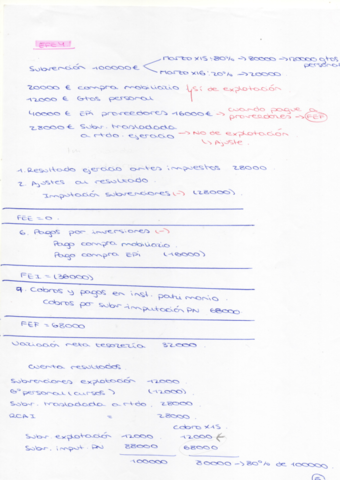 Subvención 100000€
Marzo X15: 80% → 80000 → 12000 gtos personal
Marzo X16: 20% → 20000
20000 € compra mobiliario
12000 € Gtos personal
Sí de explotación
40000 € EPI proveedores 16000 € → cuando pague a proveedores → FEI
28000 € Subv. trasladada a rtdo. ejercicio → No de explotación
↳ Ajuste.
1. Resultado ejercicio antes impuestos 28000
2. Ajustes al resultado
Imputación subvenciones (-) (28000)
FEE = 0.
6. Pagos por inversiones (-)
Pago compra mobiliario
Pago compra EPI (16000)
FEI = (36000)
9. Cobros y pagos en inst. patrimonio.
Cobros por subv. imputación PN 68000
FEF = 68000
Variación neta tesorería 32000
Cuenta resultados
Subvenciones explotación 12000
Gº personal (cursos) (12000)
Subv. trasladada a rtdo. 28000
RCAI = 28000.
cobro X15
Subv. explotación 12000 12000
Subv. imput. PN 88000 68000
100000 80000 → 80% de 100000.